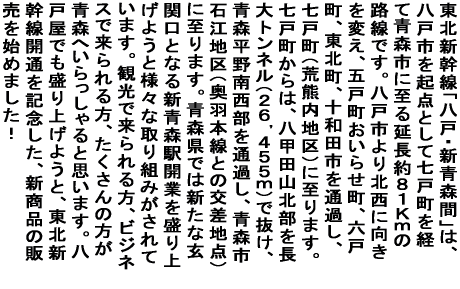 東北新幹線「八戸・新青森間」は、
八戸市を起点として七戸町を経
て青森市に至る延長約８１Ｋｍの
路線です。八戸市より北西に向き
を変え、五戸町おいらせ町、六戸
町、東北町、十和田市を通過し、
七戸町（荒熊内地区）に至ります。
七戸町からは、八甲田山北部を長
大トンネル（２６，４５５ｍ）で抜け、
青森平野南西部を通過し、青森市
石江地区（奥羽本線との交差地点）
に至ります。青森県では新たな玄
関口となる新青森駅開業を盛り上
げようと様々な取り組みがされて
います。観光で来られる方、ビジネ
スで来られる方、たくさんの方が
青森へいらっしゃると思います。八
戸屋でも盛り上げようと、東北新
幹線開通を記念した、新商品の販
売を始めました！